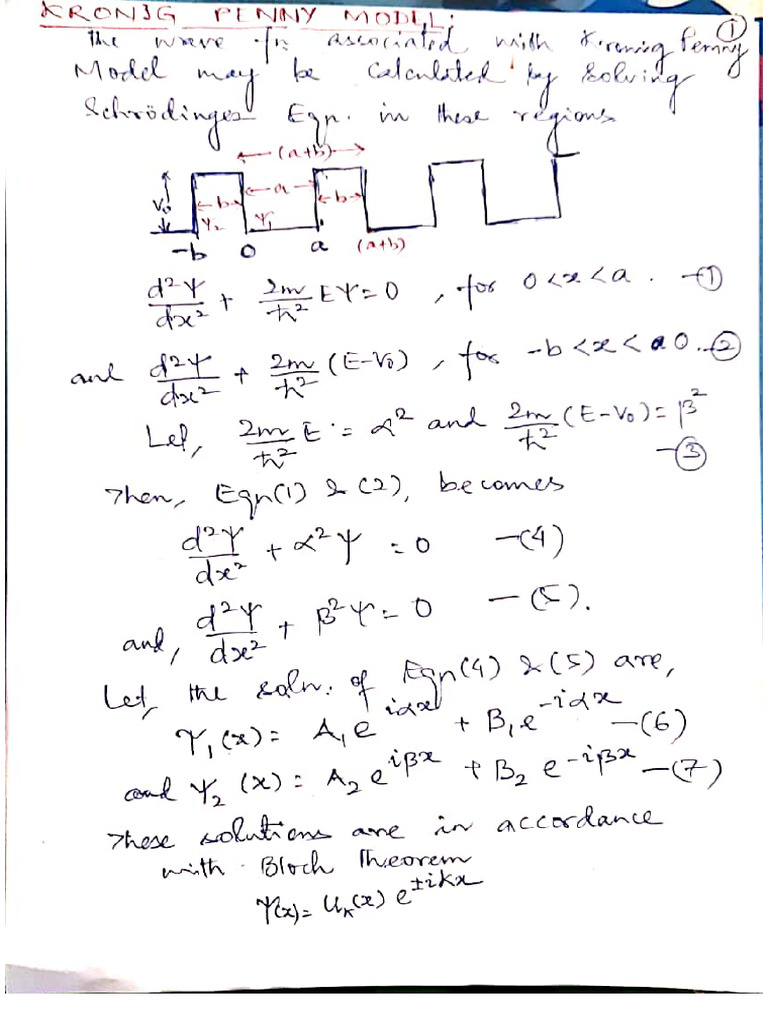 KRONIG PENNY MODEL:
①
The wave fn associated with Kroning Penny
Model may be Calculated by solving
Schrödinger Eqn. in these regions
←(a+b)→
V₀ ←b→ ←a→ ←b→
Ψ₂ Ψ₁
-b 0 a (a+b)
d²Ψ/dx² + 2m/ħ² EΨ=0 , for 0<x<a . —①
and d²Ψ/dx² + 2m/ħ² (E-V₀) , for -b<x<0. —②
Let, 2m/ħ² E = α² and 2m/ħ² (E-V₀)= β²
—③
Then, Eqn(1) & (2), becomes
d²Ψ/dx² + α²Ψ = 0 —(4)
and, d²Ψ/dx² + β²Ψ = 0 —(5).
Let, the soln. of Eqn(4) & (5) are,
Ψ₁(x) = A₁e^{iαx} + B₁e^{-iαx} —(6)
and Ψ₂(x) = A₂e^{iβx} + B₂e^{-iβx} —(7)
These solutions are in accordance
with Bloch Theorem
Ψ(x)= Uₖ(x) e^{±ikx}